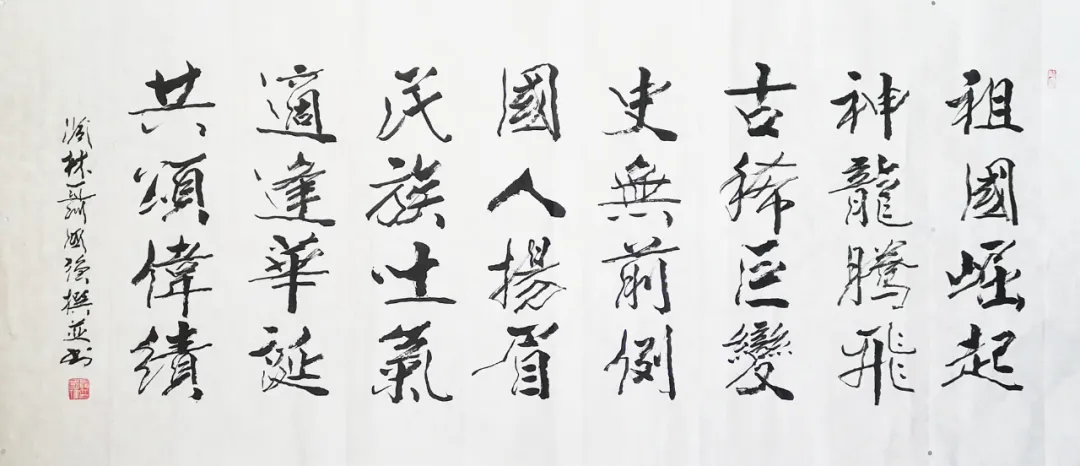 祖國崛起
神龍騰飛
古稀巨變
史無前例
國人揚眉
民族吐氣
適逢華誕
共頌偉績
林聶國強撰並書